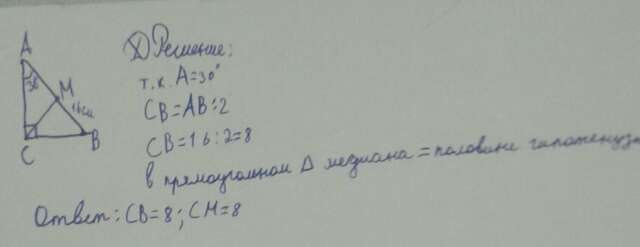 Решение:
A
т.к. A=30°
30
M
16см
CB=AB:2
CB=16:2=8
C
B
в прямоугольном Δ медиана = половине гипотенузы
Ответ: CB=8; CM=8